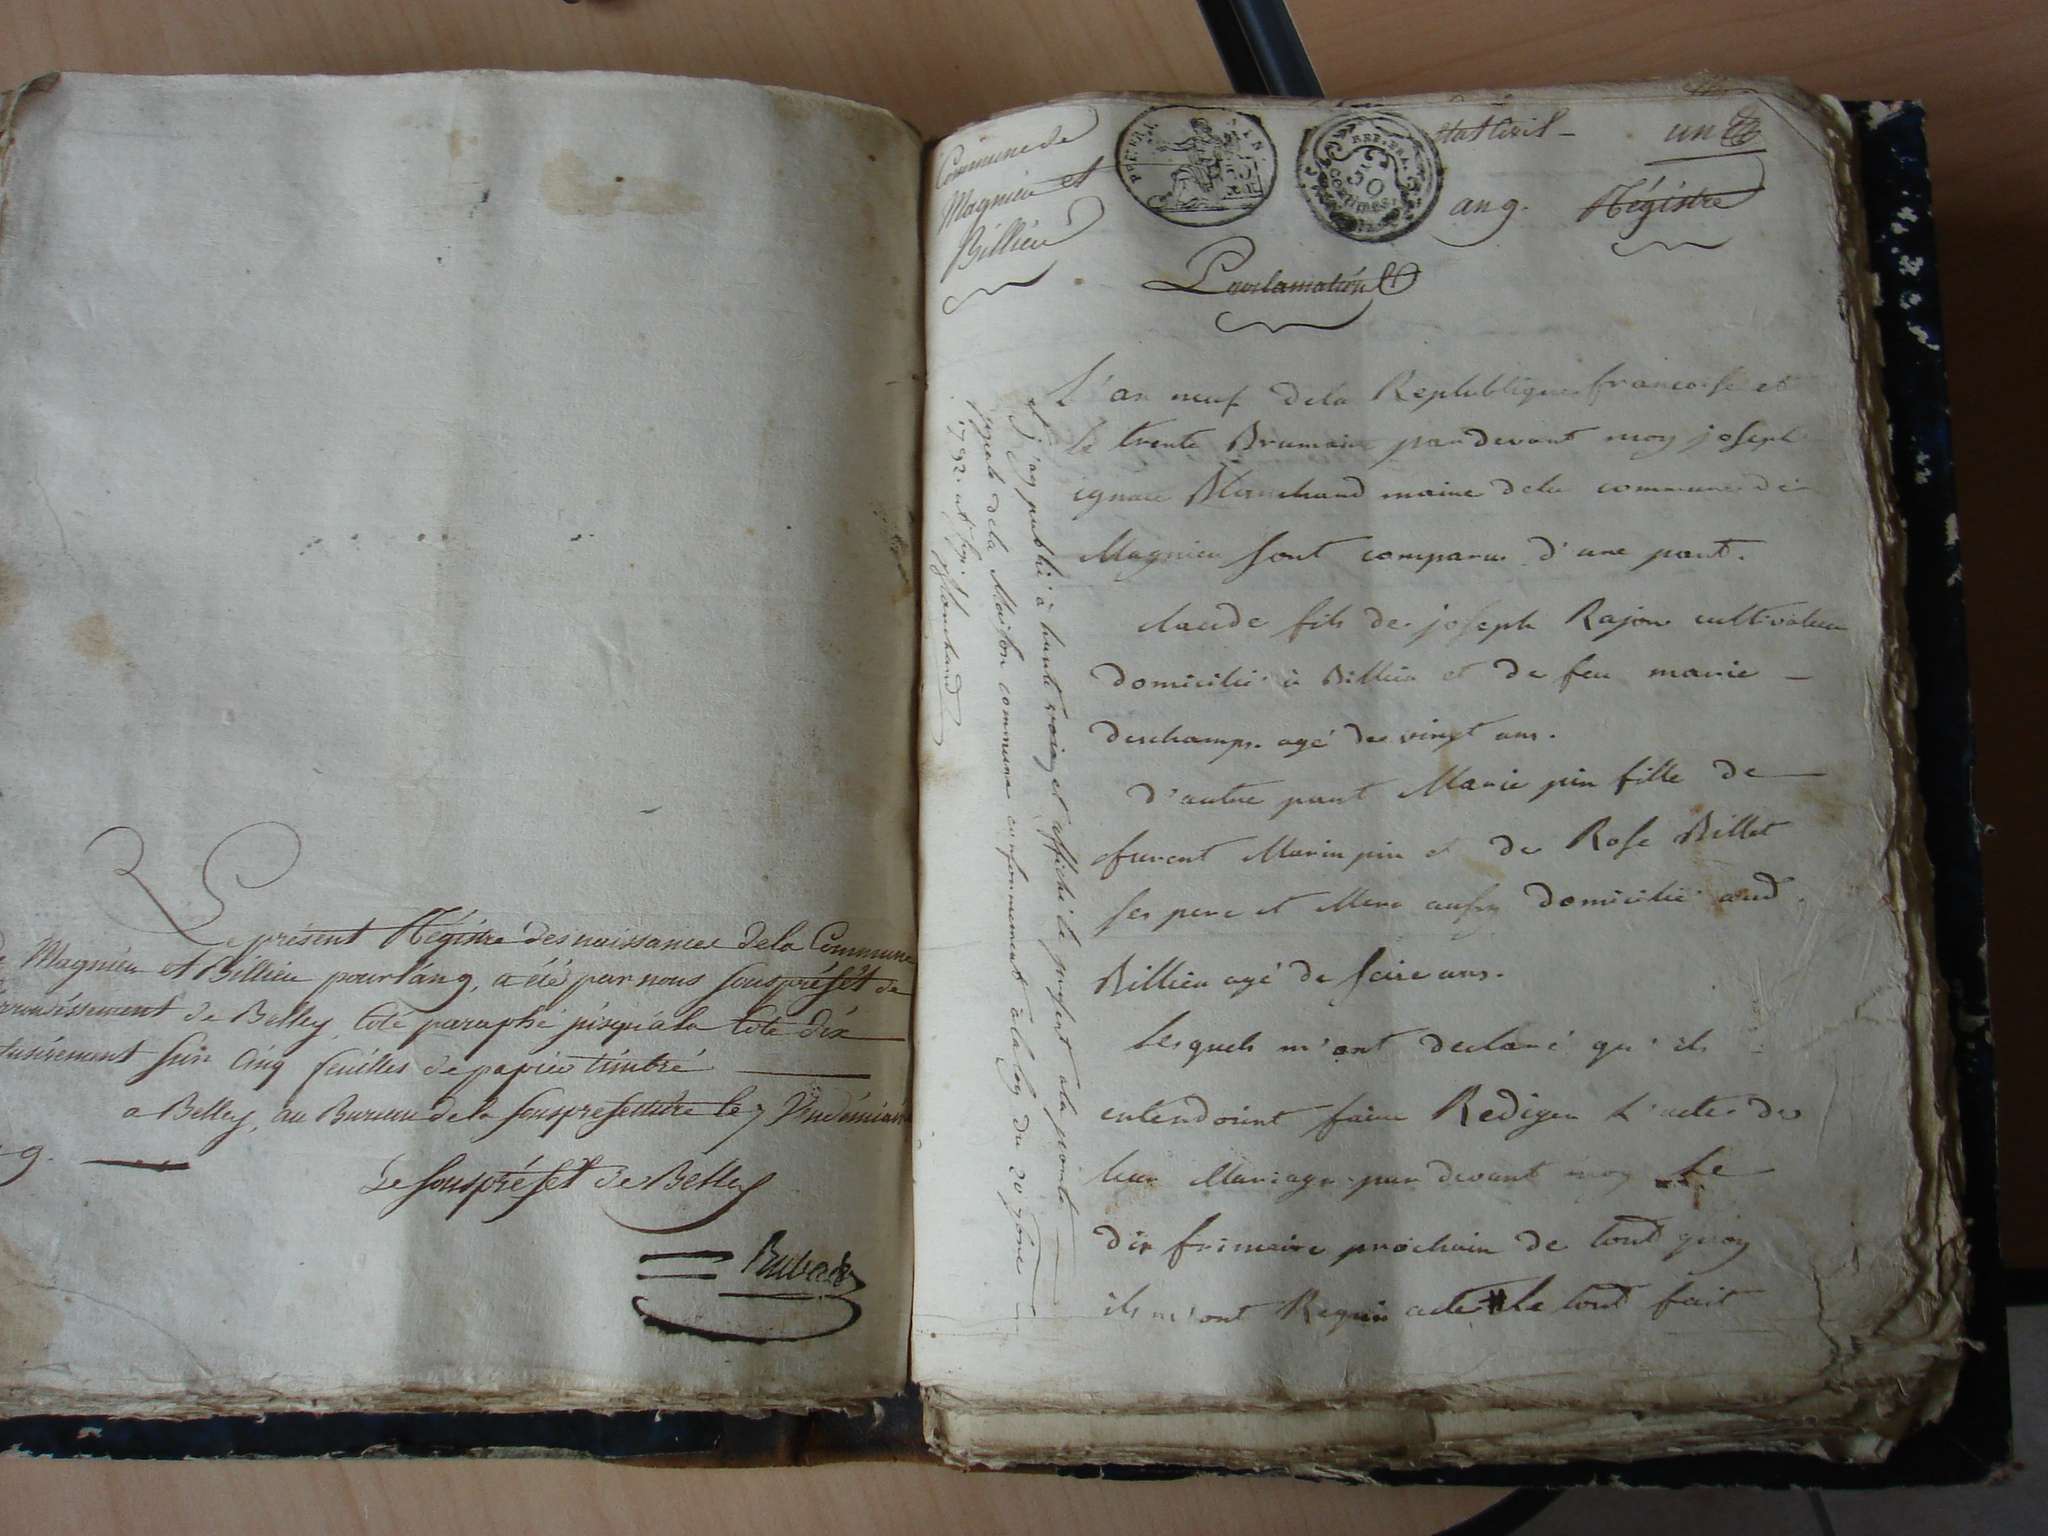 Le présent Régistre des naissances dela Commune
Magnieu et Billieu pour l'an 9, a été par nous souspréfêt de
de Belley, coté paraphé jusqu'a la Cote dix
sur cinq feuilles de papier timbré
a Belley, au Bureau de la souspréfecture le 7 Vendémiaire
9.
Le souspréfêt de Belley
Commune de
Magnieu et
Billieu
REP. FRA.
50
CENTIMES
Etat Civil
un
an 9.
Régistre
Proclamation
et j'ay publié à haute voix et affiché le present a la porte
de la Maison commune conformement à la loy du 20 7bre
1792. Blanchard
L'an neuf dela Republique francoise et
le trente Brumaire pardevant moy joseph
ignace Blanchard maire dela commune de
Magnieu sont comparus d'une part.
claude fils de joseph Rajon cultivateur
domicilié à Billieu et de feu marie
deschamps. agé de vingt ans.
D'autre part Marie pin fille de
Marin pin et de Rose Billet
ses pere et Mere aussy domicilié aud.
Billieu agé de seire ans.
Lesquels m'ont declaré qu'ils
entendoint faire Rediger L'acte de
leur Mariage par devant moy le
dix frimaire prochain de tout quoy
ils m'ont Requis acte le tout fait